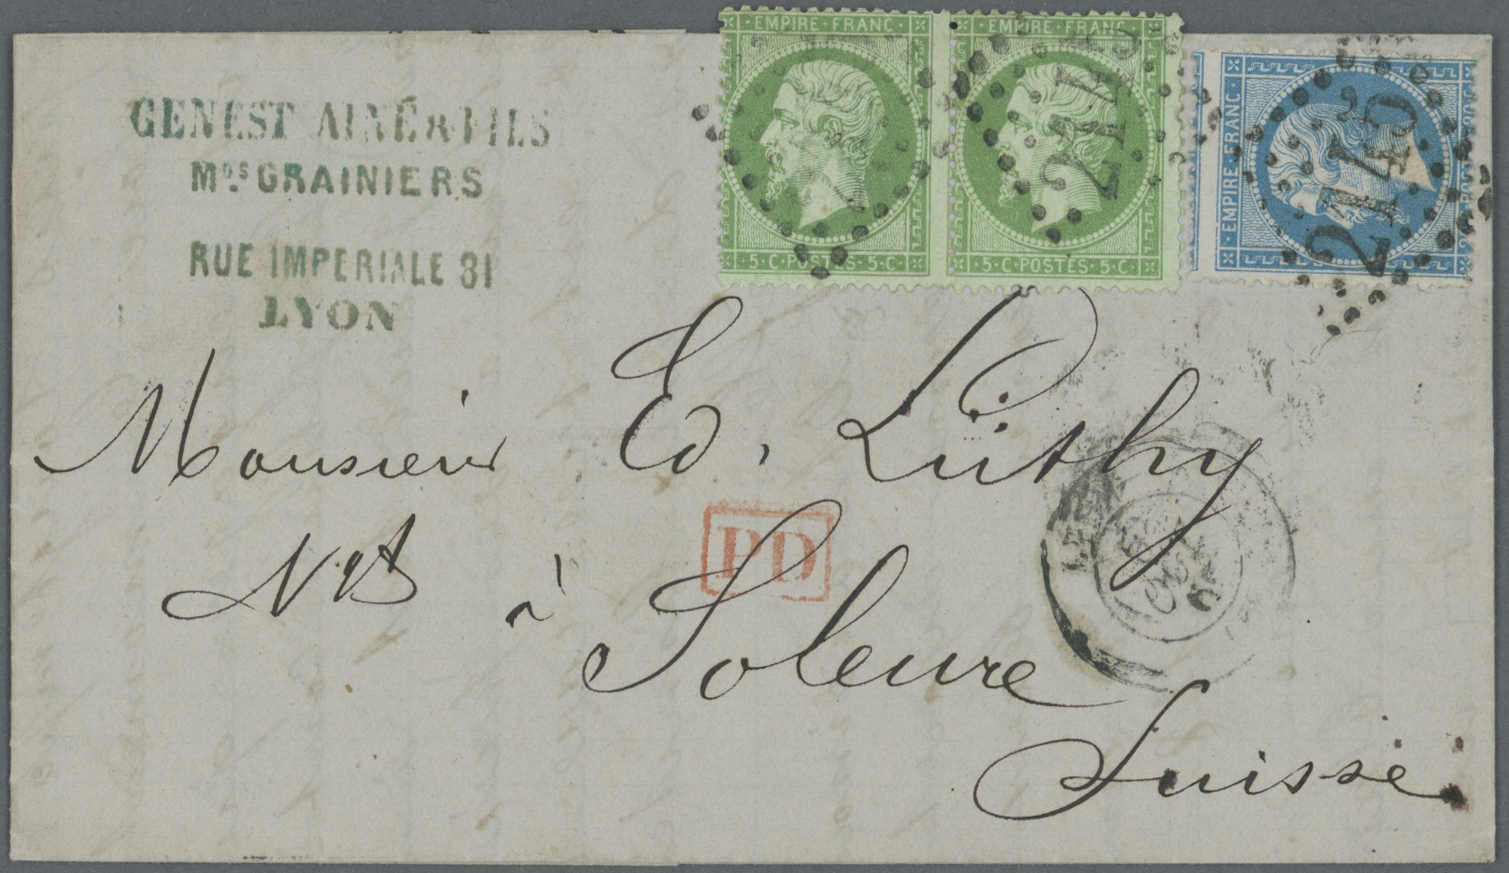 EMPIRE · FRANC ·
5 · C · POSTES · 5 · C ·
EMPIRE · FRANC ·
5 · C · POSTES · 5 · C ·
2145
EMPIRE · FRANC ·
2145
GENEST AINÉ & FILS
Mds GRAINIERS
RUE IMPERIALE 31
LYON
Monsieur Ed. Lüthy
à
PD
Soleure
Suisse